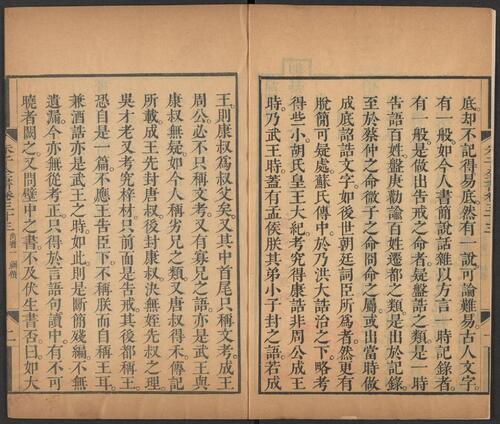 底却不記得易底然有一說可論難易古人文字。
有一般如今人書簡說話雜以方言一時記錄者。
有一般是做出告戒之命者疑盤誥之類是一時
告語百姓盤庚勸諭百姓遷都之類是出於記錄。
至於蔡仲之命微子之命冏命之屬或出當時做
成底詔誥文字如後世朝廷詞臣所爲者然更有
脫簡可疑處蘇氏傳中於乃洪大誥治之下略考
得些小胡氏皇王大紀考究得康誥非周公成王
時乃武王時蓋有孟侯朕其弟小子封之語若成
王則康叔爲叔父矣又其中首尾只稱文考成王
周公必不只稱文考又有寡兄之語亦是武王與
康叔無疑如今人稱劣兄之類又唐叔得禾傳記
所載成王先封唐叔後封康叔決無姪先叔之理
吳才老又考究梓材只前面是告戒其後都稱王
恐自是一篇不應王告臣下不稱朕而自稱王耳
兼酒誥亦是武王之時如此則是斷簡殘編不無
遺漏今亦無從考正只得於言語句讀中有不可
曉者闕之又問壁中之書不及伏生書否曰如大